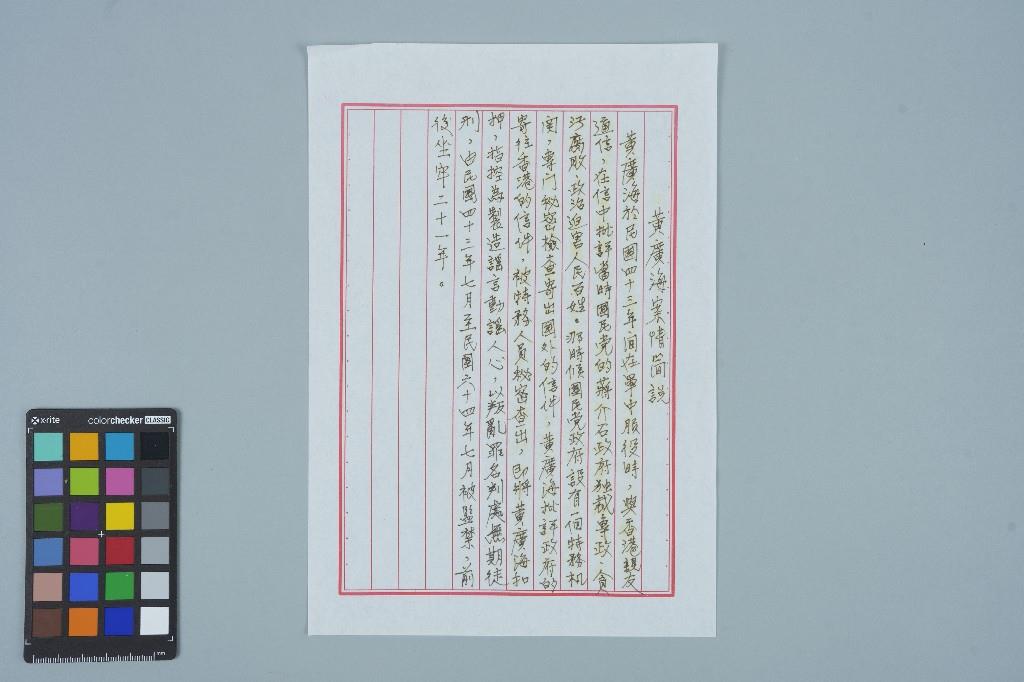 黃廣海案情簡說
黃廣海於民國四十三年间在軍中服役時，與香港親友
通信，在信中批評當時國民党的蔣介石政府独裁專政、貪
污腐敗、政治迫害人民百姓。那時候國民党政府設有一個特務机
関，專门秘密檢查寄出國外的信件，黃廣海批評政府的
寄往香港的信件，被特務人員秘密查出，即將黃廣海扣
押，指控為製造謠言動謠人心，以叛亂罪名判處無期徒
刑，由民國四十三年七月至民國六十四年七月被監禁，前
後坐牢二十一年。
x-rite
colorchecker CLASSIC
mm